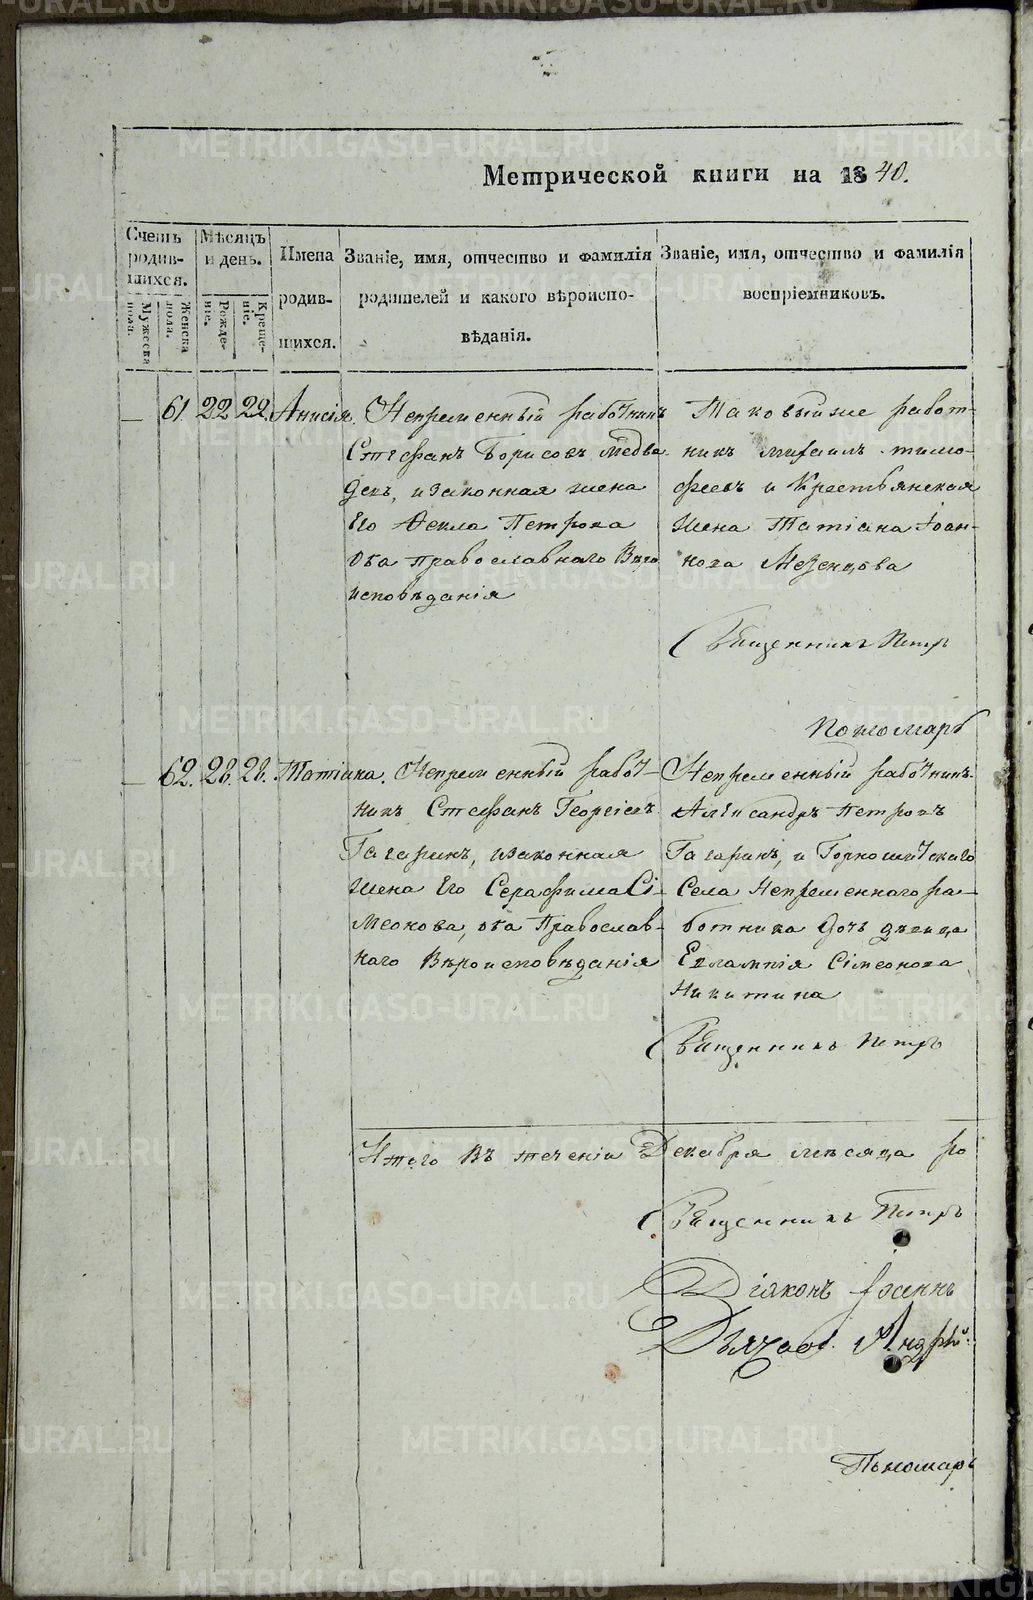 Метрической книги на 1840.
Счетъ родив-шихся.
Мужеска пола.
Женска пола.
Мѣсяцъ и день.
Рожде-нія.
Креще-нія.
Имена родив-шихся.
Званіе, имя, отчество и фамилія
родителей и какого вѣроиспо-
вѣданія.
Званіе, имя, отчество и фамилія
воспріемниковъ.
— 61 22 22. Анисія.
Непременный работникъ
Стефанъ Борисовъ Медве
девъ, и законная жена
Его Ѳекла Петрова
оба православнаго Веро
исповѣданія
Таковый же работ-
никъ Михаилъ Тимо-
феевъ и Крестьянская
жена Татіана Іоан-
нова Мезенцова
Священникъ Петръ
Пономарь
— 62. 28. 28. Татіана.
Непременный работ-
никъ Стефанъ Георгіевъ
Гагаринъ, и законная
жена Его Серафима Сі-
меонова, оба Православ-
наго Вѣроисповѣданія
Непременный работникъ
Александръ Петровъ
Гагаринъ, и Горнощитскаго
Села Непременнаго ра-
ботника дочь девица
Евлампія Сімеонова
Никитина
Священникъ Петръ
Итого въ теченіи Декабря месяца ро
Священникъ Петръ
Діаконъ Іоаннъ
Дьячокъ Андрѣй
Пономарь
METRIKI.GASO-URAL.RU